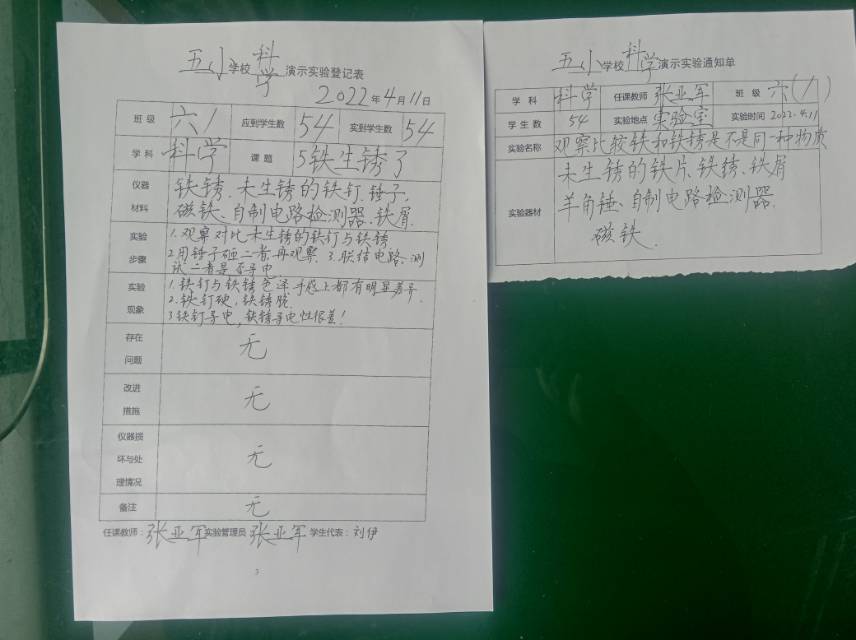 五小学校科学演示实验登记表
2022年4月11日
班级 六1 应到学生数 54 实到学生数 54
学科 科学 课题 5铁生锈了
仪器材料 铁锈、未生锈的铁钉、锤子、
磁铁、自制电路检测器、铁屑.
实验步骤 1.观察对比未生锈的铁钉与铁锈
2.用锤子砸二者再观察 3.联结电路、测
试二者是否导电.
实验现象 1.铁钉与铁锈色泽手感上都有明显差异.
2.铁钉硬,铁锈脆.
3铁钉导电,铁锈导电性很差!
存在问题 无
改进措施 无
仪器损坏与处理情况 无
备注 无
任课教师:张亚军 实验管理员 张亚军 学生代表:刘伊
3
五小学校科学演示实验通知单
学科 科学 任课教师 张亚军 班级 六(1)
学生数 54 实验地点 实验室 实验时间 2022.4.11
实验名称 观察比较铁和铁锈是不是同一种物质
实验器材 未生锈的铁片、铁锈、铁屑
羊角锤、自制电路检测器.
磁铁.